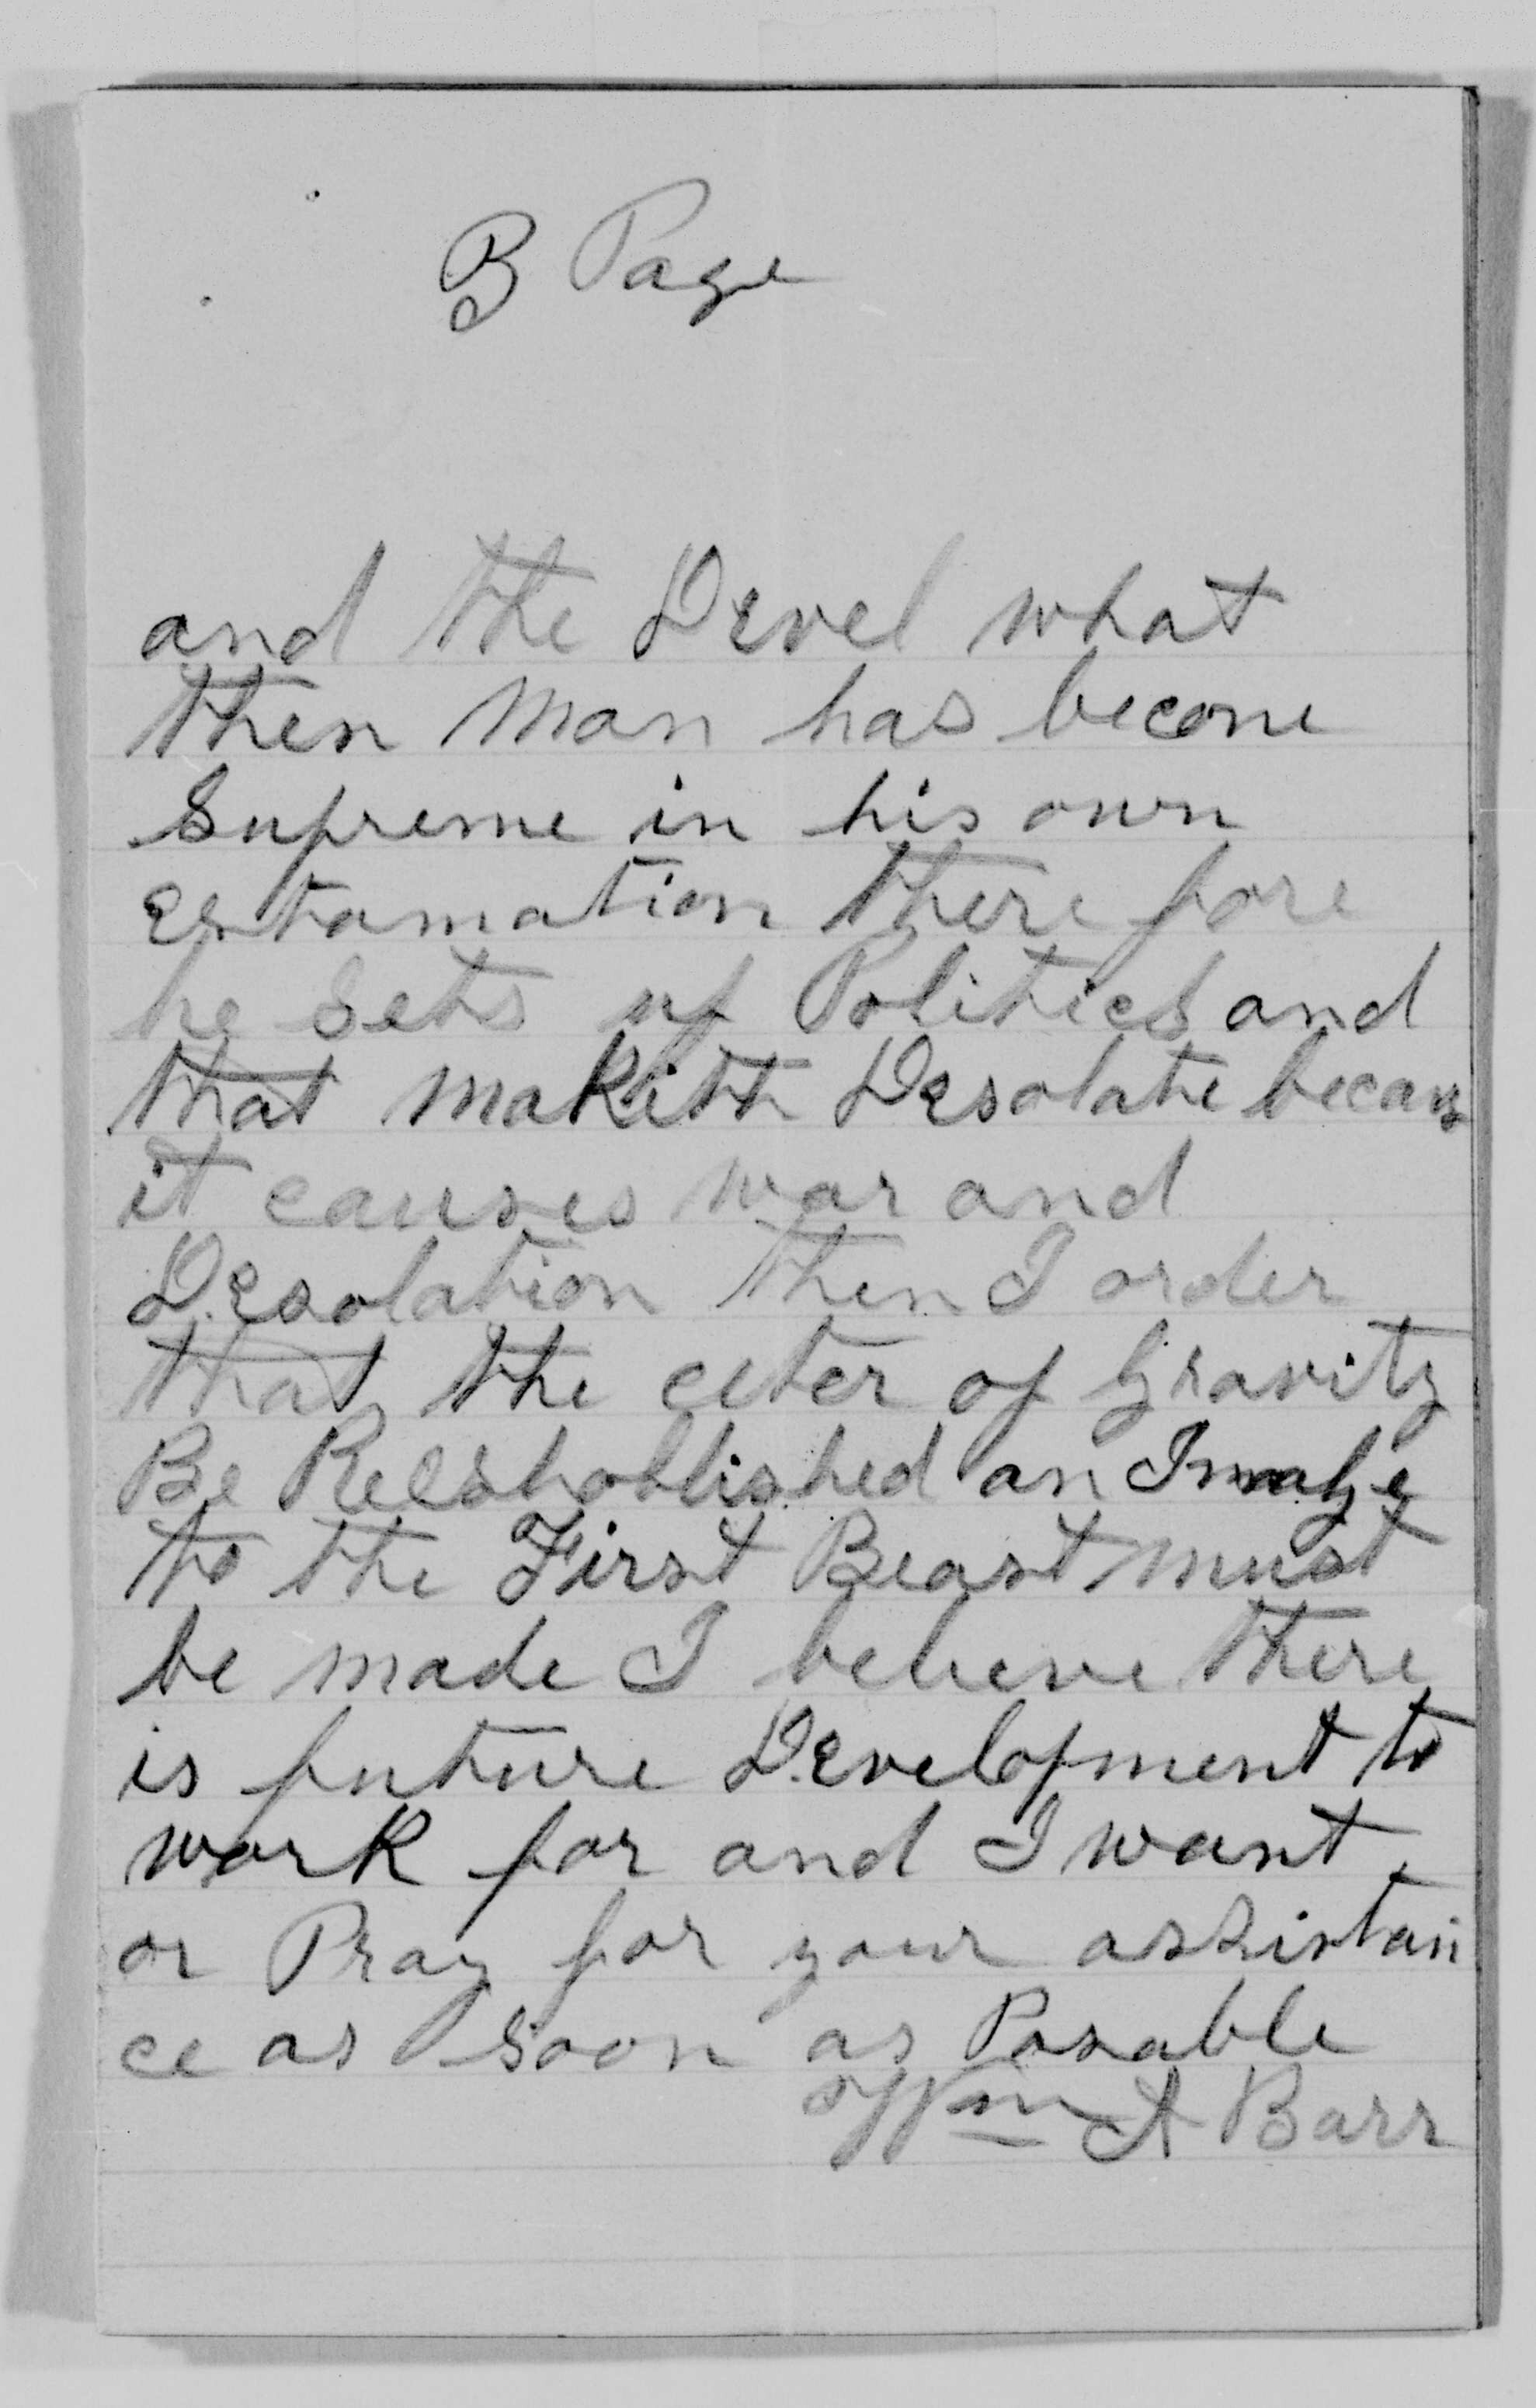 B Page
and the Devel what
then man has become
Supreme in his own
estamation there fore
he Sets up Politics and
that makith Desolate becaus
it causes war and
Desolation then I order
that the ceter of Gravity
Be Reestablished an Image
to the First Beast must
be made I believe there
is future Development to
work for and I want
or Pray for your assistan
ce as soon as Posable
Wm A Barr